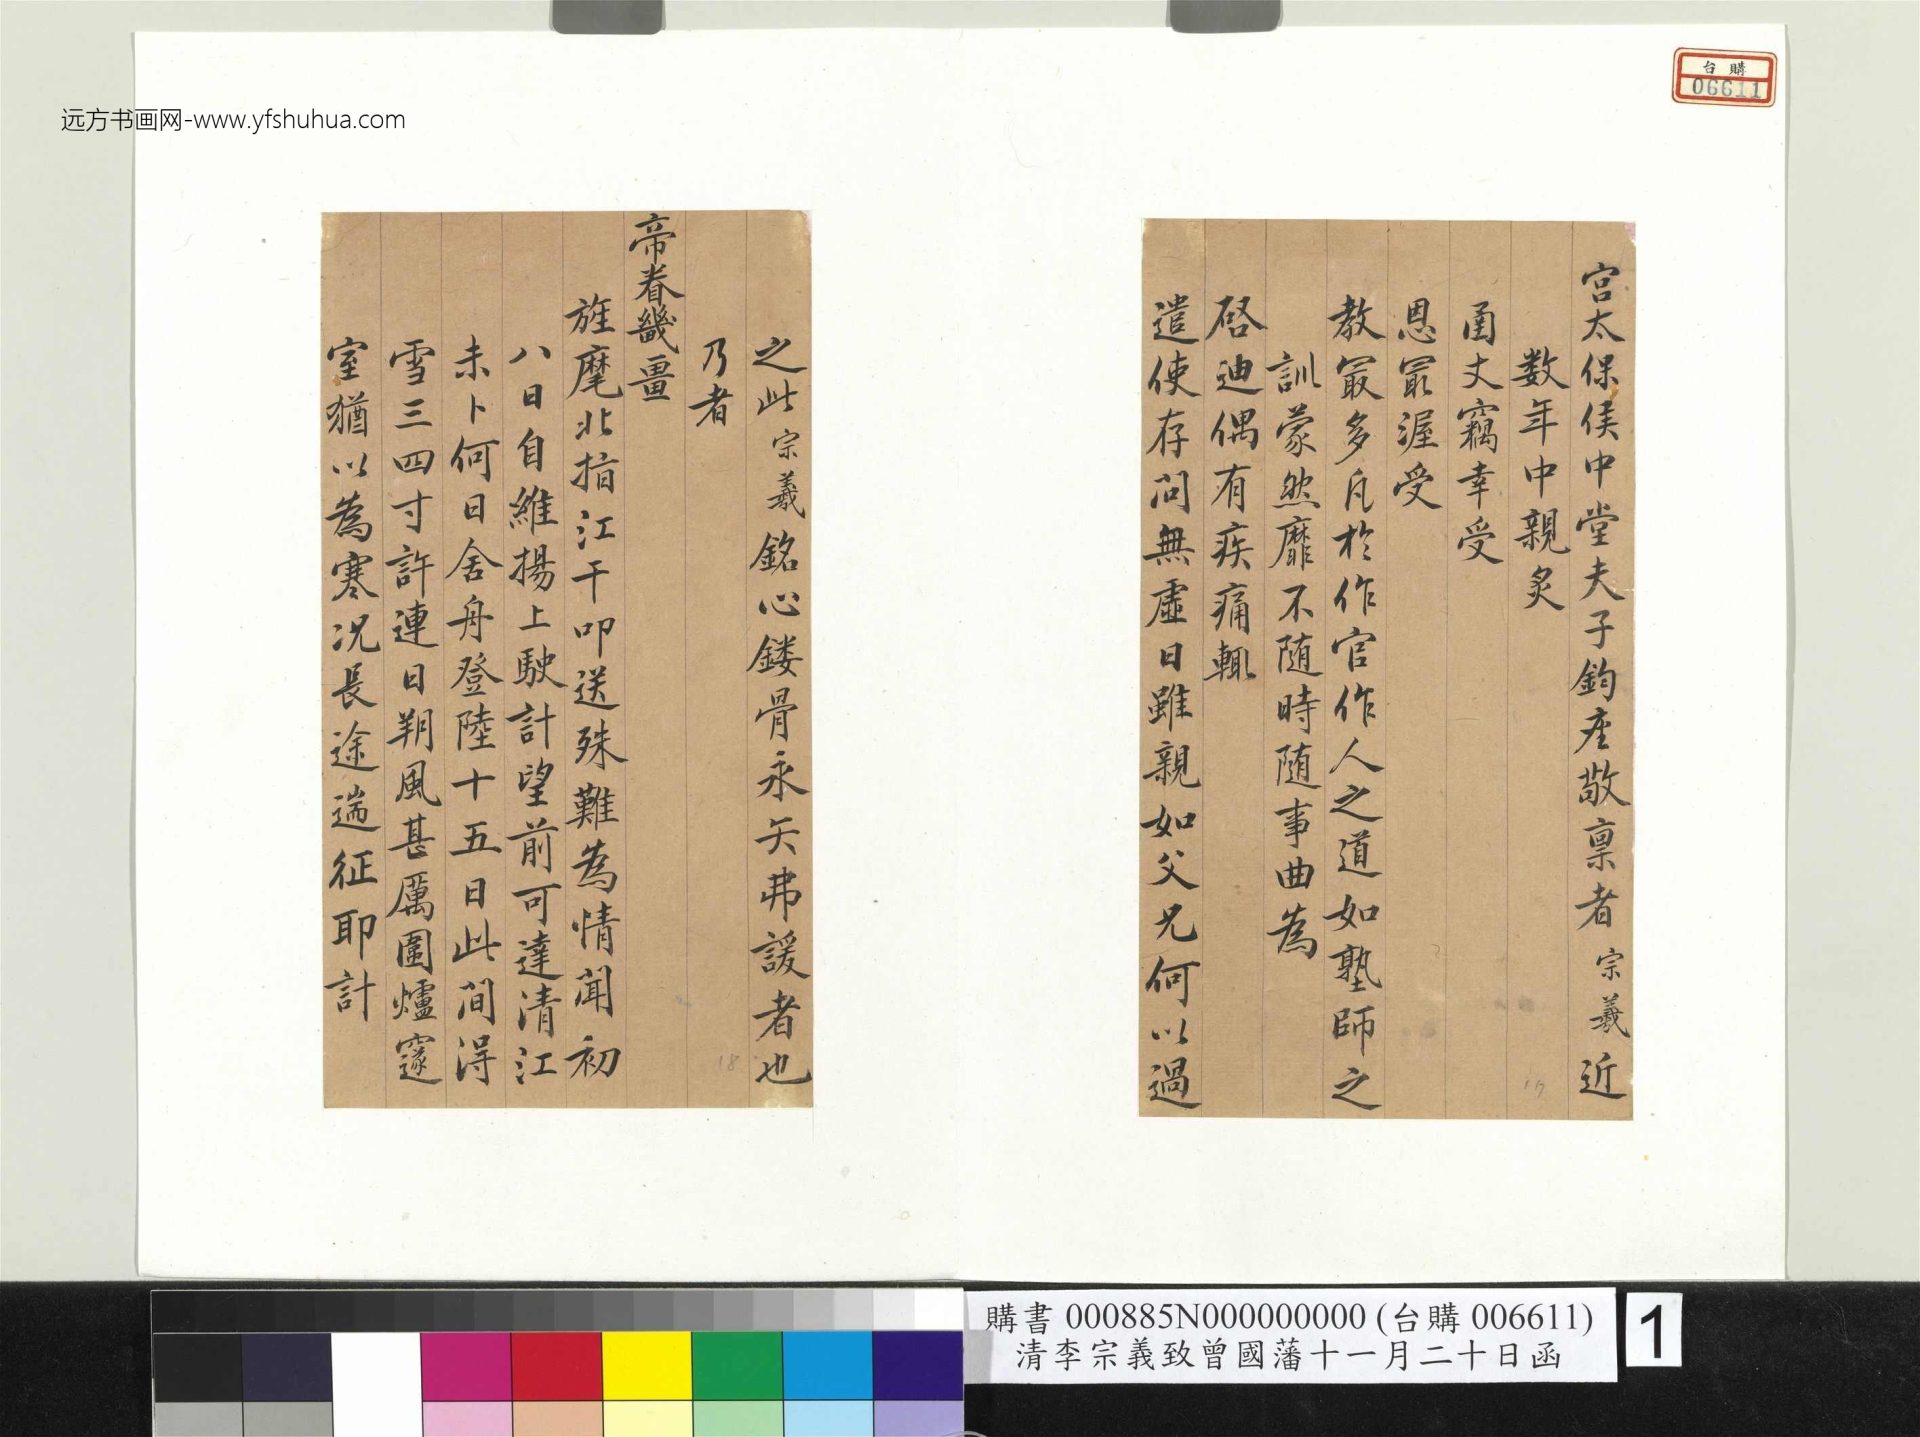 远方书画网-www.yfshuhua.com
台購
06611
宮太保侯中堂夫子鈞座敬稟者宗羲近
数年中親炙
函丈竊幸受
恩冣渥受
教冣多凡於作官作人之道如塾師之
訓蒙然靡不随時随事曲為
啓迪偶有疾痛輒
遣使存问無虛日雖親如父兄何以過
之此宗羲銘心鏤骨永矢弗諼者也
乃者
帝眷畿畺
旌麾北指江干叩送殊難為情聞初
八日自維揚上駛計望前可達清江
未卜何日舍舟登陸十五日此間得
雪三四寸許連日朔風甚厲圍爐邃
室猶以為寒况長途遄征耶計
17
18
購書 000885N000000000 (台購 006611)
清李宗義致曾國藩十一月二十日函
1